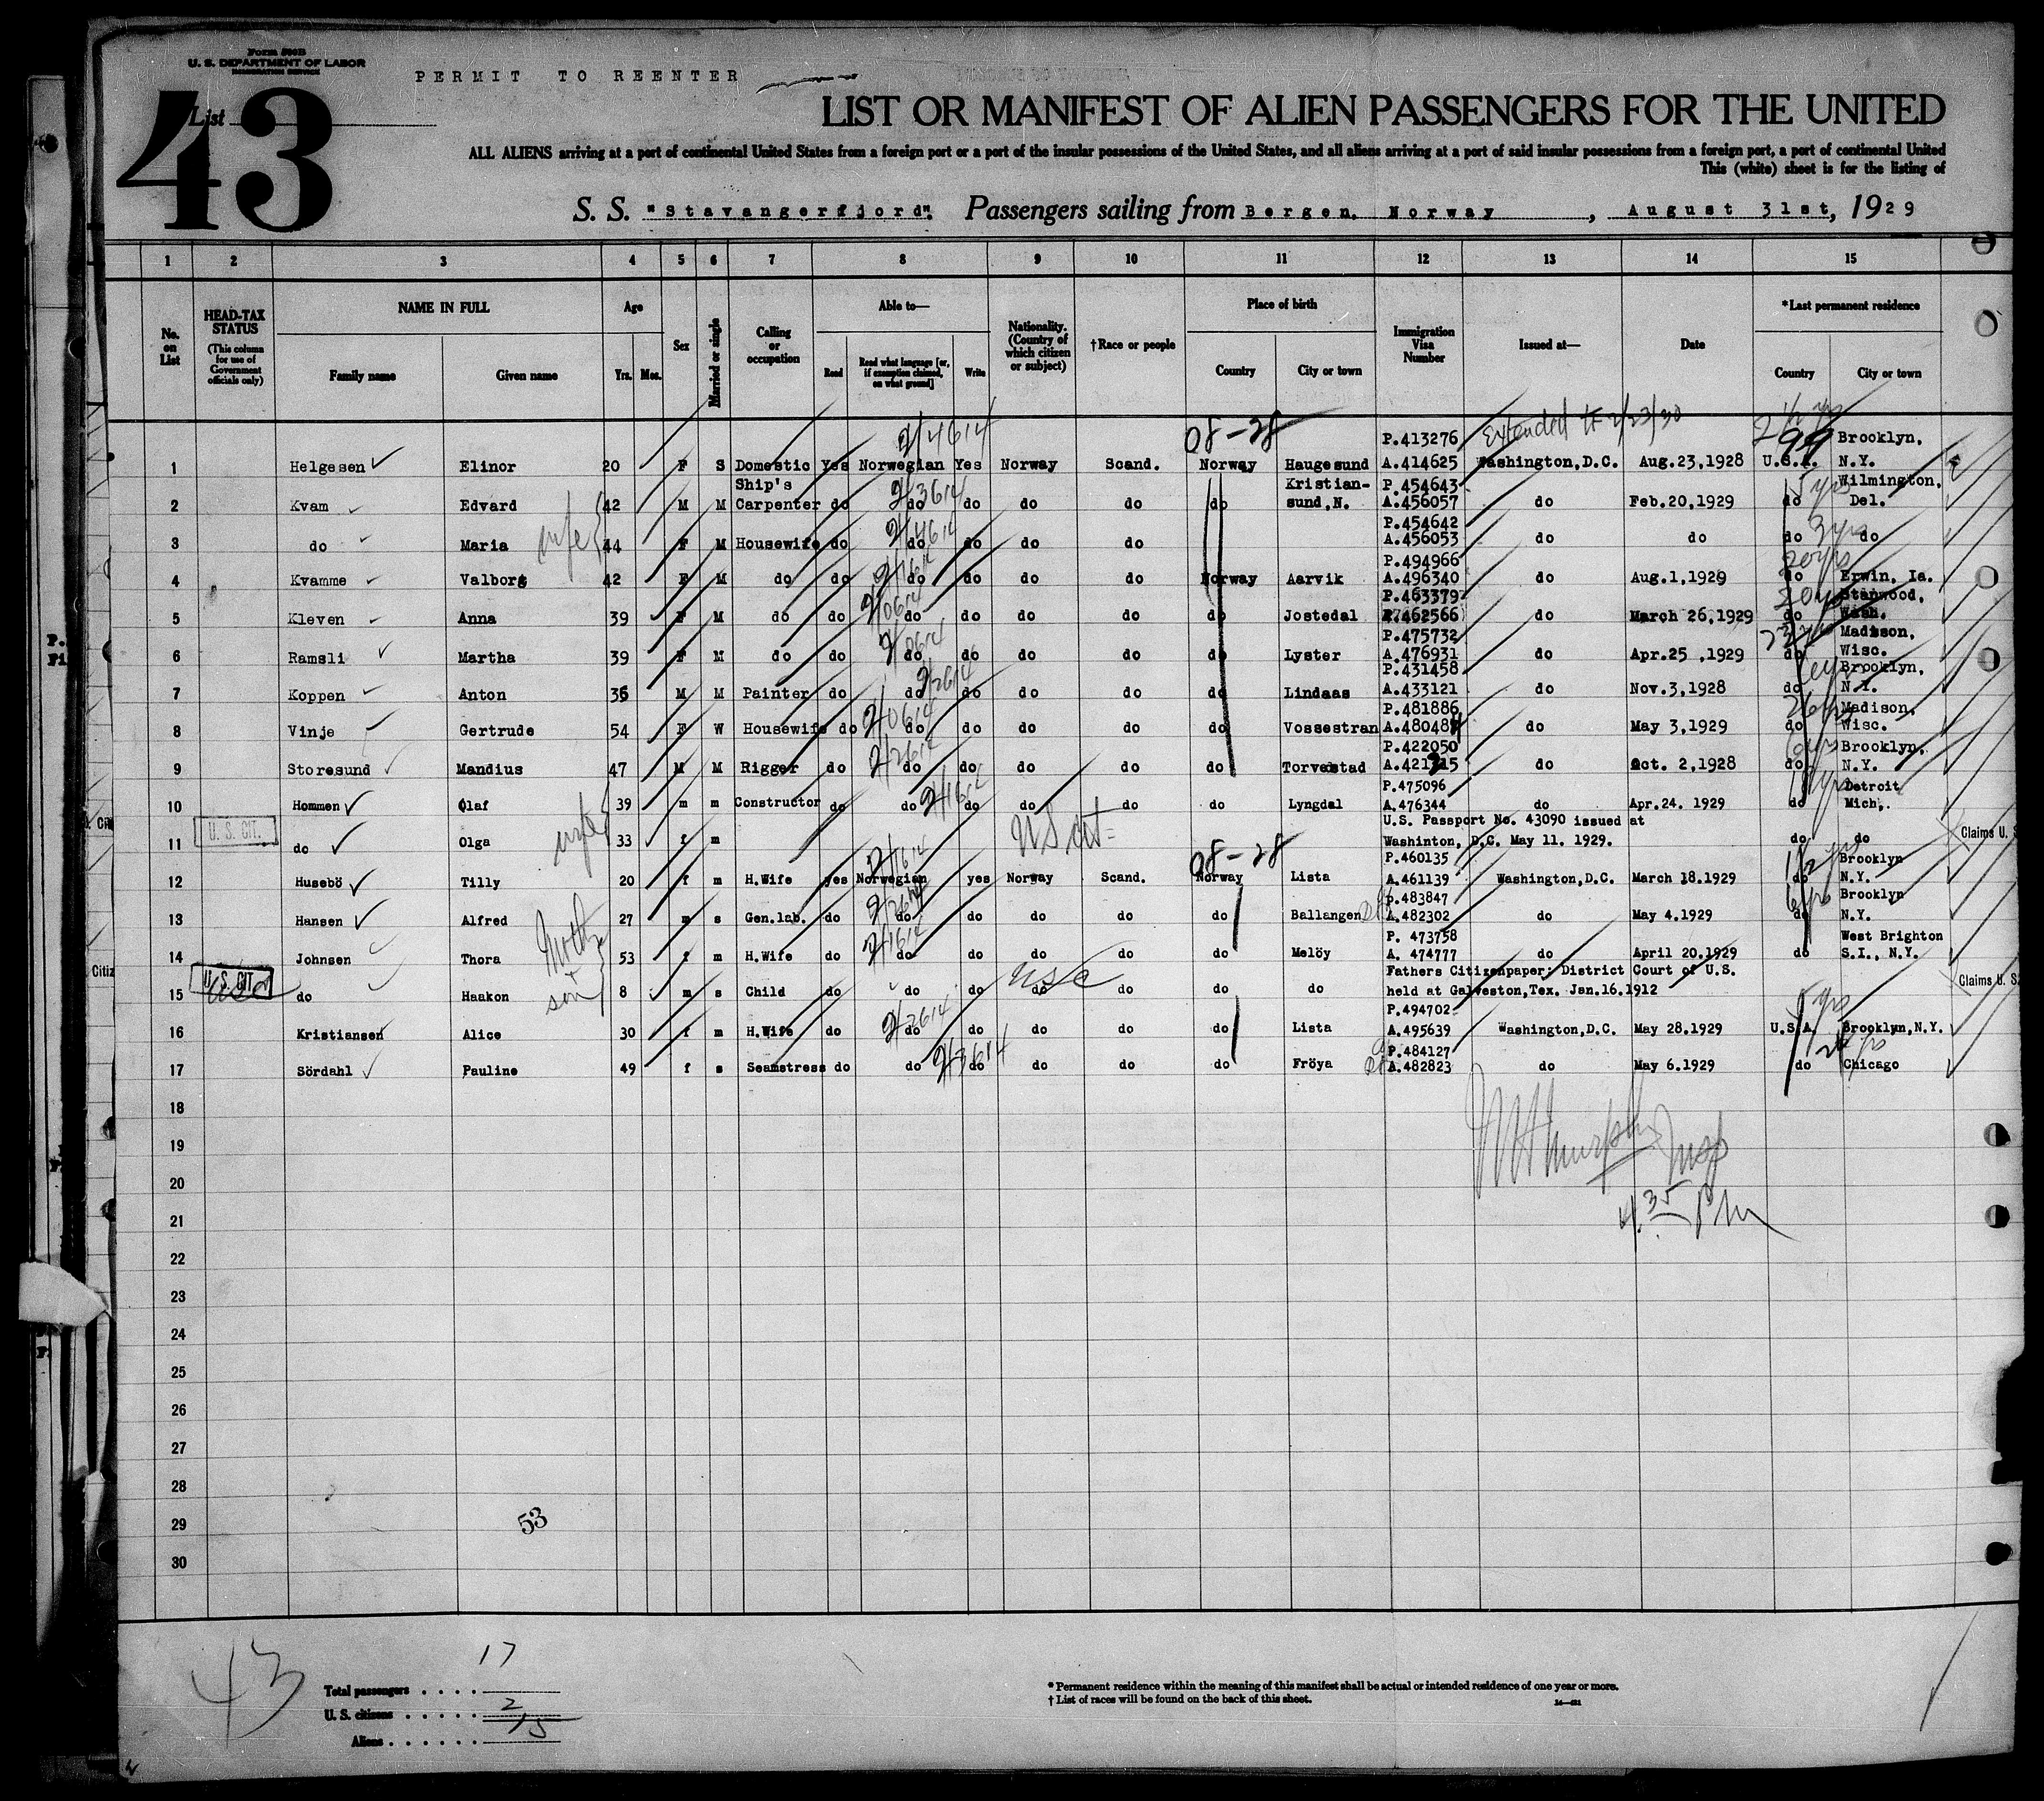 Form 500B
U. S. DEPARTMENT OF LABOR
IMMIGRATION SERVICE
PERMIT TO REENTER
List
43
LIST OR MANIFEST OF ALIEN PASSENGERS FOR THE UNITED
ALL ALIENS arriving at a port of continental United States from a foreign port or a port of the insular possessions of the United States, and all aliens arriving at a port of said insular possessions from a foreign port, a port of continental United
This (white) sheet is for the listing of
S. S. "Stavangerfjord". Passengers sailing from Bergen. Norway, August 31st, 1929
1 2 3 4 5 6 7 8 9 10 11 12 13 14 15
No. on List
HEAD-TAX STATUS (This column for use of Government officials only)
NAME IN FULL
Family name
Given name
Age
Yrs. Mos.
Sex
Married or single
Calling or occupation
Able to—
Read
Read what language [or, if exemption claimed, on what ground]
Write
Nationality. (Country of which citizen or subject)
†Race or people
Place of birth
Country
City or town
Immigration Visa Number
Issued at—
Date
*Last permanent residence
Country
City or town
2/4614 08-28 P.413276 Extended to 2/23/30 2 1/2 yrs 99 Brooklyn,
1 Helgesen Elinor 20 F S Domestic Yes Norwegian Yes Norway Scand. Norway Haugesund A.414625 Washington,D.C. Aug.23,1928 U.S.A. N.Y.
Ship's 2/3614 Kristian- P.454643 5 yrs Wilmington,
2 Kvam Edvard 42 M M Carpenter do do do do do do sund,N. A.456057 do Feb.20,1929 do Del.
wife 2/4614 P.454642 3 yrs
3 do Maria 44 F M Housewife do do do do do A.456053 do do do do
2/1614 P.494966 20 yrs
4 Kvamme Valborg 42 F M do do do do do do Norway Aarvik A.496340 do Aug.1,1929 do Erwin, Ia.
2/0614 P.463379 20 yrs Stanwood,
5 Kleven Anna 39 F M do do do do do do do Jostedal 462566 do March 26,1929 do Wash.
2/0614 P.475732 Madison,
6 Ramsli Martha 39 F M do do do do do do do Lyster A.476931 do Apr.25 ,1929 do Wisc.
2/2614 P.431458 Brooklyn,
7 Koppen Anton 36 M M Painter do do do do do do Lindaas A.433121 do Nov.3,1928 do N.Y.
2/0614 P.481886 26 yrs Madison,
8 Vinje Gertrude 54 F W Housewife do do do do do do Vossestran A.480484 do May 3,1929 do Wisc.
2/2614 P.422050 6 yrs Brooklyn,
9 Storesund Mandius 47 M M Rigger do do do do do do Torvestad A.421315 do Oct. 2,1928 do N.Y.
2/1614 P.475096 Detroit
10 Hommen Olaf 39 m m Constructor do do do do do do Lyngdal A.476344 do Apr.24. 1929 do Mich,.
U. S. CIT. wife US cit= U.S. Passport No. 43090 issued at
11 do Olga 33 f m Washinton, D.C. May 11. 1929. do do Claims U. S
2/1614 08-28 P.460135 1 1/2 yrs Brooklyn
12 Husebö Tilly 20 f m H.Wife yes Norwegian yes Norway Scand. Norway Lista A.461139 Washington,D.C. March 18.1929 do N.Y.
2/2614 P.483847 6 yrs Brooklyn
13 Hansen Alfred 27 m s Gen.lab. do do do do do do Ballangen A.482302 do May 4.1929 do N.Y.
Mother 2/1614 P. 473758 West Brighton
14 Johnsen Thora 53 f m H.Wife do do do do do do Melöy A. 474777 do April 20.1929 do S.I., N.Y.
U. S. CIT. USC Fathers Citizenpaper: District Court of U.S.
15 do son Haakon 8 m s Child do do do do do do do held at Galveston,Tex. Jan.16.1912 Claims U. S.
USC
2/2614 P.494702 5 yrs
16 Kristiansen Alice 30 f m H.Wife do do do do do do Lista A.495639 Washington,D.C. May 28.1929 U.S.A. Brooklyn,N.Y.
2/3614 P.484127 yrs
17 Sördahl Pauline 49 f s Seamstress do do do do do do Fröya A.482823 do May 6.1929 do Chicago
18
19
Murphy Insp
20
4.35 PM
21
22
23
24
25
26
27
28
29
53
30
43
Total passengers . . . . 17
U. S. citizens . . . . . 2
Aliens . . . . . . 15
* Permanent residence within the meaning of this manifest shall be actual or intended residence of one year or more.
† List of races will be found on the back of this sheet.